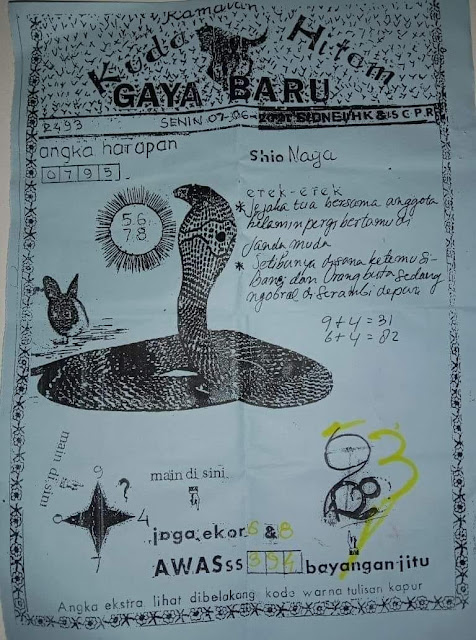 Ramalan
Kuda Hitam
GAYA BARU
2493
SENIN 07-06-2021 SIDNEI/HK & S G P. R
angka harapan
0 7 9 5
Shio Naga
erek-erek
* Jejaka tua bersama anggota
kelamin pergi bertamu di
Janda muda
* Setibanya disana ketemu Si-
bang dan Orang buta sedang
ngobrol di serambi depan
9+4 = 31
6+4 = 82
56
78
main di sini
9
?
4
7
6
main di sini
joga ekor 6 & 8
AWASss 394 bayangan jitu
Angka ekstra lihat dibelakang kode warna tulisan kapur